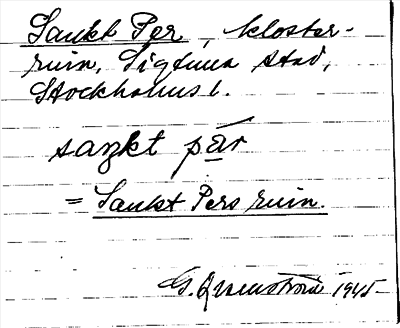 Sankt Per, kloster-
ruin, Sigtuna stad,
Stockholms l.
saŋkt pär
= Sankt Pers ruin.
G. 1945